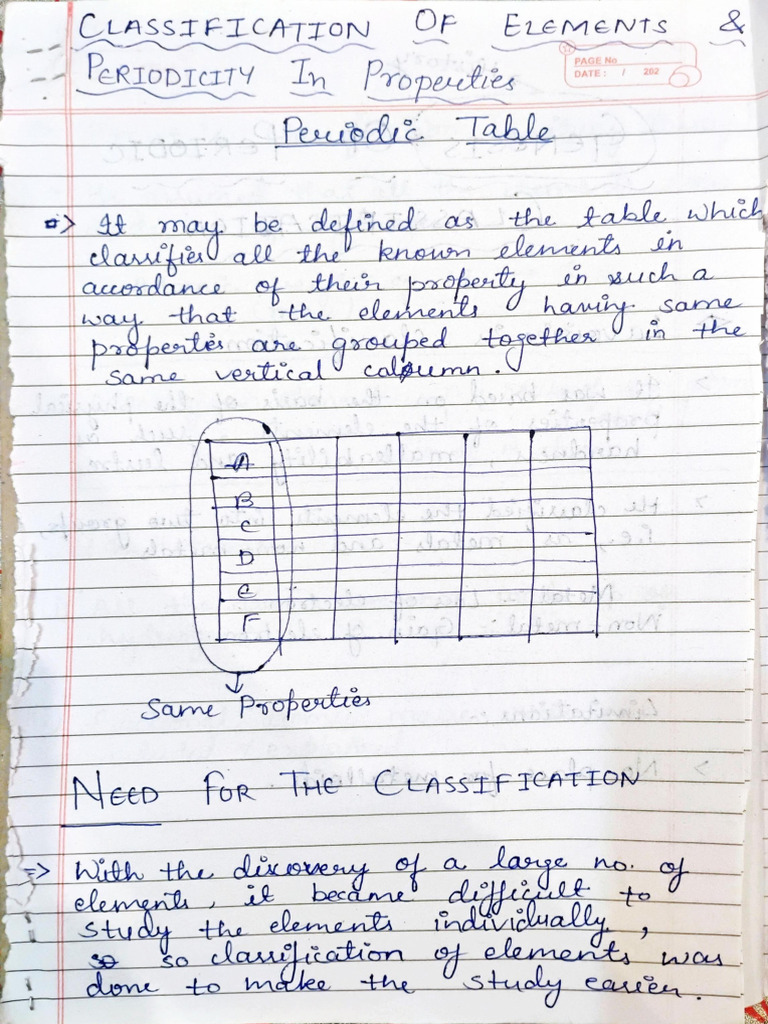 CLASSIFICATION OF ELEMENTS &
PERIODICITY In Properties
PAGE No
DATE : / 202
Periodic Table
=> It may be defined as the table which
classifies all the known elements in
accordance of their property in such a
way that the elements having same
properties are grouped together in the
same vertical caloumn.
A
B
C
D
E
F
Same Properties
NEED FOR THE CLASSIFICATION
=> With the discovery of a large no. of
elements, it became difficult to
study the elements individually,
so so classification of elements was
done to make the study easier.